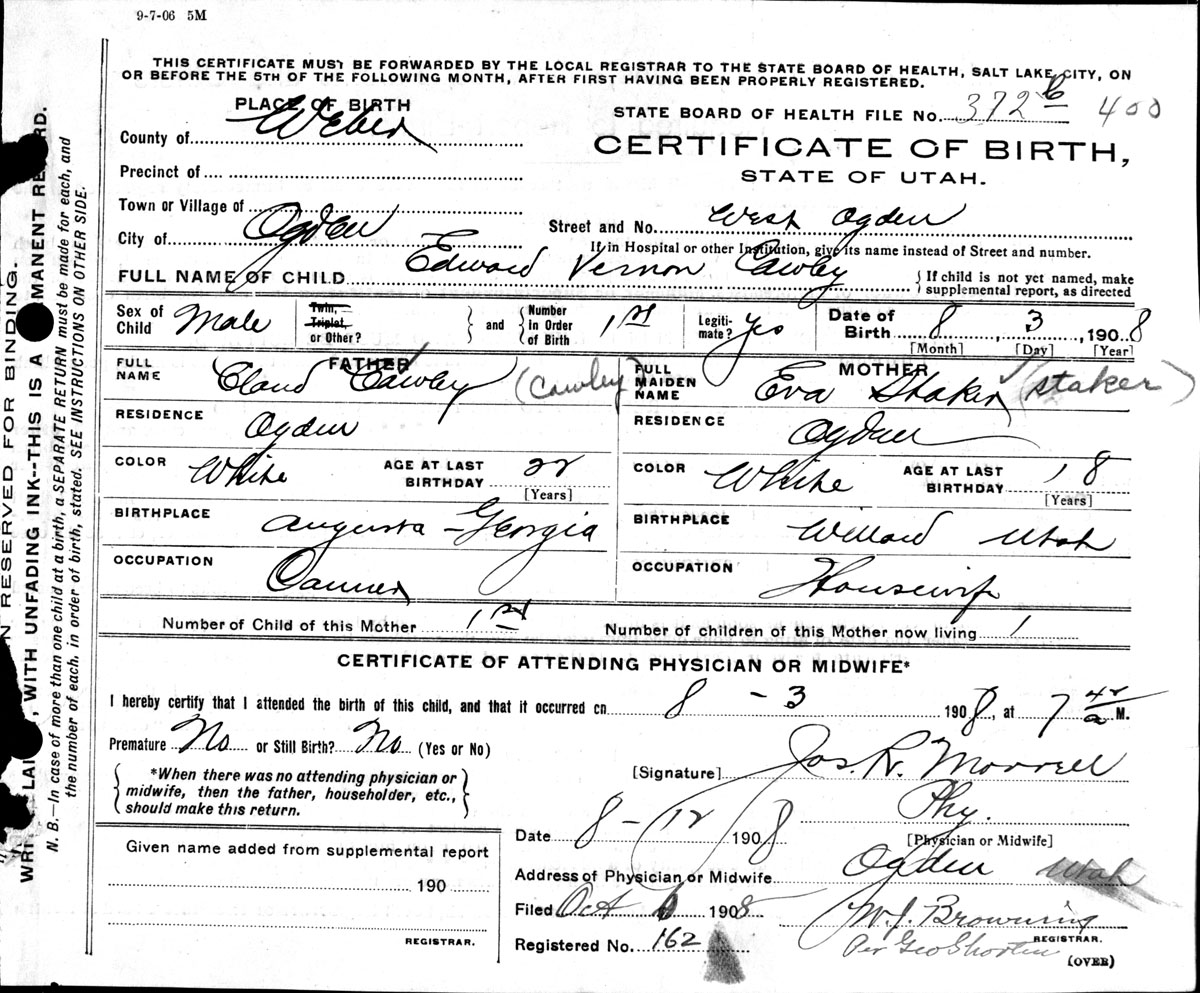 9-7-06 5M
THIS CERTIFICATE MUST BE FORWARDED BY THE LOCAL REGISTRAR TO THE STATE BOARD OF HEALTH, SALT LAKE CITY, ON
OR BEFORE THE 5TH OF THE FOLLOWING MONTH, AFTER FIRST HAVING BEEN PROPERLY REGISTERED.
PLACE OF BIRTH
County of Weber
Precinct of
Town or Village of
City of Ogden
STATE BOARD OF HEALTH FILE No. 372 400
CERTIFICATE OF BIRTH,
STATE OF UTAH.
Street and No. West Ogden
If in Hospital or other Institution, give its name instead of Street and number.
FULL NAME OF CHILD Edward Vernon Cawley
{If child is not yet named, make
supplemental report, as directed
Sex of Child Male
Twin, Triplet, or Other?
and
Number in Order of Birth 1st
Legiti-mate? Yes
Date of Birth 8, 3 1908
[Month] [Day] [Year]
FATHER
FULL NAME Claud Cawley (Cawley)
RESIDENCE Ogden
COLOR White AGE AT LAST BIRTHDAY 22
[Years]
BIRTHPLACE Augusta - Georgia
OCCUPATION Canner
MOTHER
FULL MAIDEN NAME Eva Staker (staker)
RESIDENCE Ogden
COLOR White AGE AT LAST BIRTHDAY 18
[Years]
BIRTHPLACE Willard Utah
OCCUPATION Housewife
Number of Child of this Mother 1st Number of children of this Mother now living 1
CERTIFICATE OF ATTENDING PHYSICIAN OR MIDWIFE*
I hereby certify that I attended the birth of this child, and that it occurred on 8 - 3 1908, at 7 42 a M.
Premature No or Still Birth? No (Yes or No)
*When there was no attending physician or
midwife, then the father, householder, etc.,
should make this return.
[Signature] Jos. R. Morrell
Phy.
[Physician or Midwife]
Date 8 - 12 1908
Address of Physician or Midwife Ogden Utah
Given name added from supplemental report
190
REGISTRAR.
Filed Oct 1908
W. J. Browning
REGISTRAR.
Per Geo Shorten
Registered No. 162
(OVER)
N RESERVED FOR BINDING.
WRI LAI , WITH UNFADING INK--THIS IS A MANENT RE RD.
N. B.—In case of more than one child at a birth, a SEPARATE RETURN must be made for each, and
the number of each, in order of birth, stated. SEE INSTRUCTIONS ON OTHER SIDE.